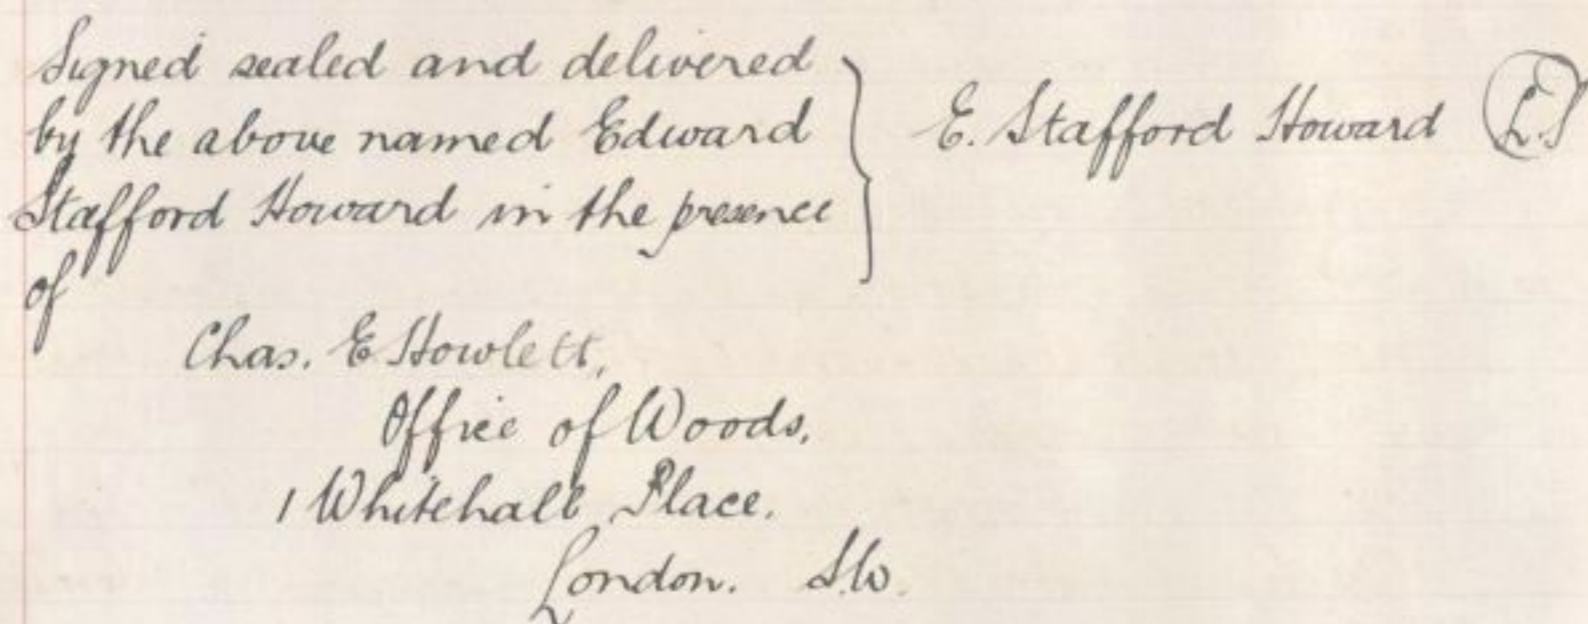 Signed sealed and delivered
by the above named Edward
Stafford Howard in the presence
of
E. Stafford Howard L.S
Chas. E Howlett,
Office of Woods,
1 Whitehall Place.
London. S.W.